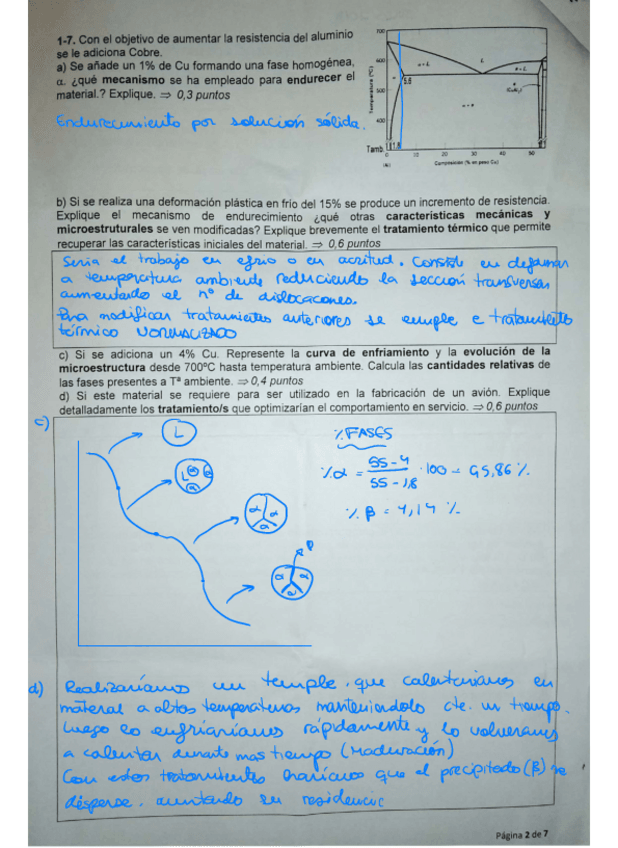 1-7. Con el objetivo de aumentar la resistencia del aluminio
se le adiciona Cobre.
a) Se añade un 1% de Cu formando una fase homogénea,
α. ¿qué mecanismo se ha empleado para endurecer el
material.? Explique. ⇒ 0,3 puntos
Endurecimiento por solución sólida.
700
600
500
400
Tamb.
Temperatura (ºC)
α + L
L
5.6
1.8
0 10 20 30 40 50
Composición (% en peso Cu)
b) Si se realiza una deformación plástica en frio del 15% se produce un incremento de resistencia.
Explique el mecanismo de endurecimiento ¿qué otras características mecánicas y
microestruturales se ven modificadas? Explique brevemente el tratamiento térmico que permite
recuperar las características iniciales del material. ⇒ 0,6 puntos
Seria el trabajo en frio o en acritud. Consiste en deformar
a temperatura ambiente reduciendo la sección transversal
aumentando el nº de dislocaciones.
Para modificar tratamientos anteriores se emple e tratamiento
térmico NORMALIZADO
c) Si se adiciona un 4% Cu. Represente la curva de enfriamiento y la evolución de la
microestructura desde 700ºC hasta temperatura ambiente. Calcula las cantidades relativas de
las fases presentes a Tª ambiente. ⇒ 0,4 puntos
d) Si este material se requiere para ser utilizado en la fabricación de un avión. Explique
detalladamente los tratamiento/s que optimizarían el comportamiento en servicio. ⇒ 0,6 puntos
c)
L
L α α α
α α α
β
α α α
% FASES
% α = 55-4 / 55-1,8 · 100 = 95,86 %
% β = 4,14 %
d) Realizaríamos un temple, que calentaríamos en
material a altas temperaturas manteniendolo cte. un tiempo.
Luego lo enfriaríamos rápidamente y lo volveríamos
a calentar durante mas tiempo (Maduración)
Con estos tratamientos haríamos que el precipitado (β) se
disperse,
Página 2 de 7